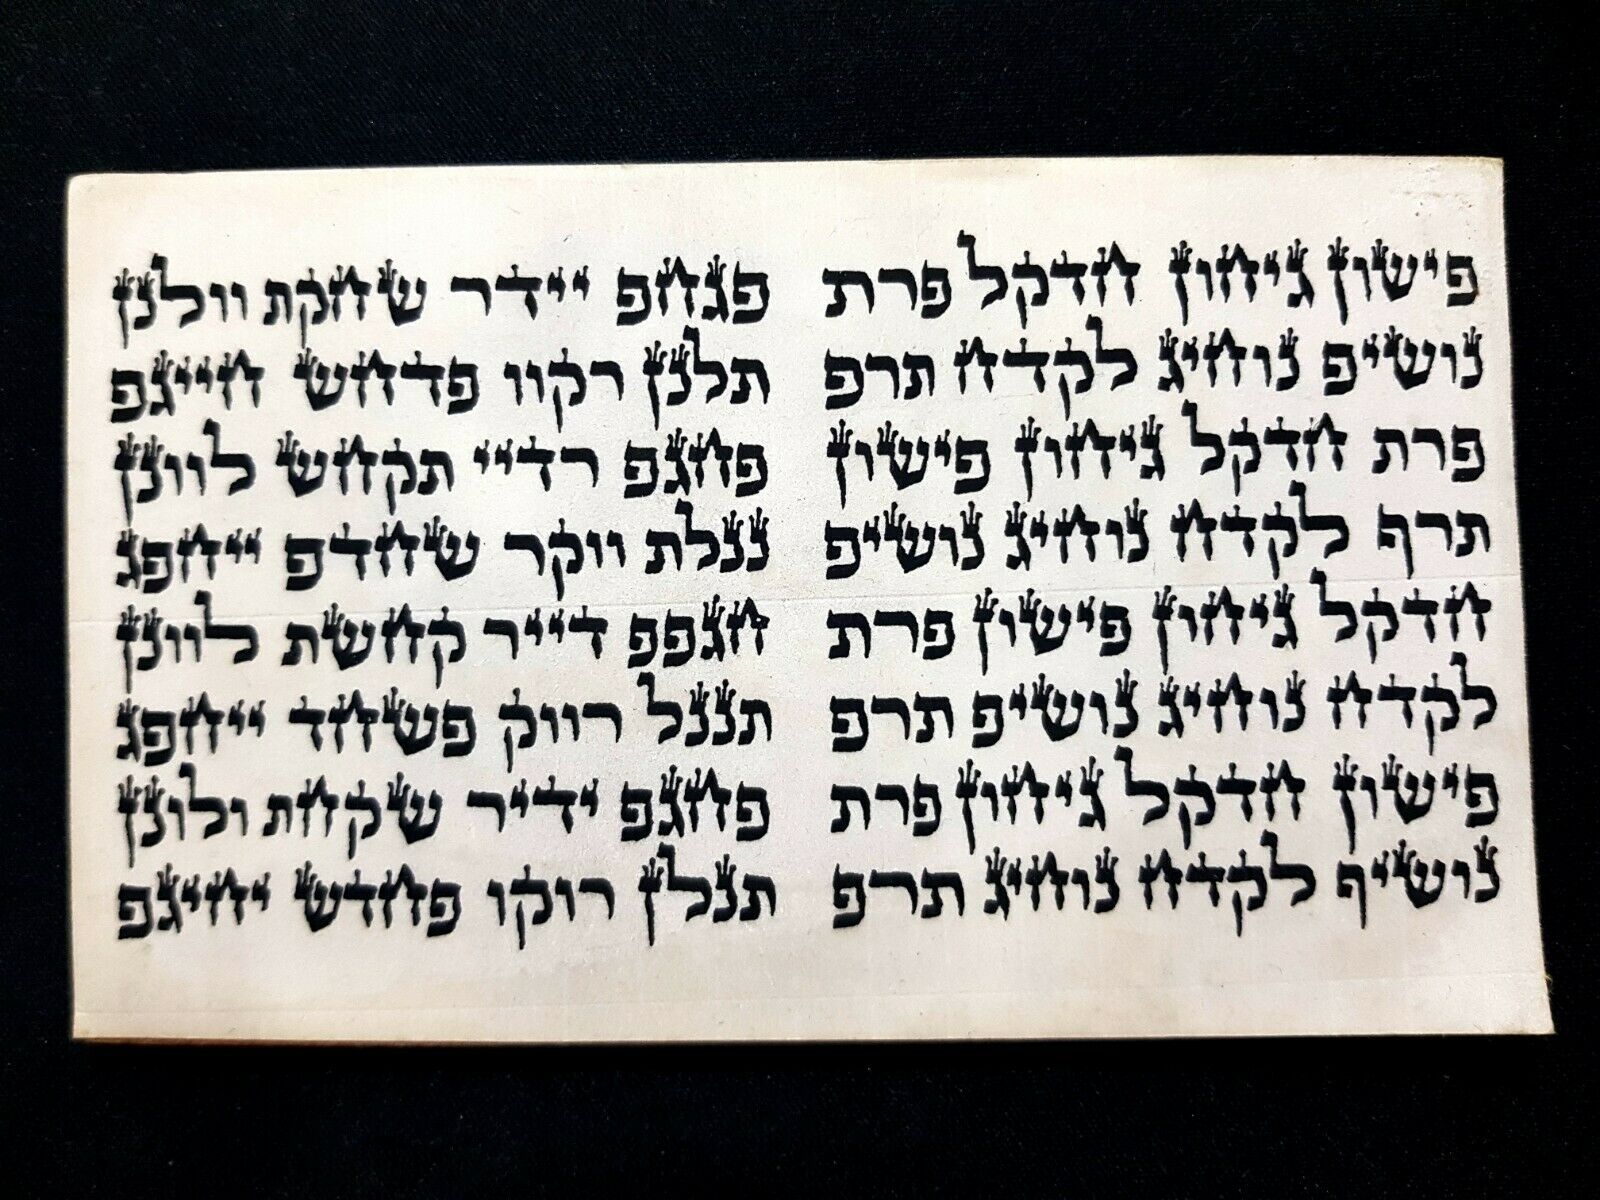 פישון גיחון חדקל פרת
נושיפ נוחיג לקדח תרפ
פרת חדקל גיחון פישון
תרף לקדח נוחיג נושיפ
חדקל גיחון פישון פרת
לקדח נוחיג נושיפ תרפ
פישון חדקל גיחון פרת
נושיף לקדח נוחיג תרפ
פגחפ יידר שחקת וולנן
תלנן רקוו פדחש חייגפ
פחגפ רדיי תקחש לוונן
ננלת ווקר שחדפ ייחפג
חגפפ דייר קחשת לוונן
תננל רווק פשחד ייחפג
פחגפ ידיר שקחת ולונן
תנלן רוקו פחדש יחיגפ